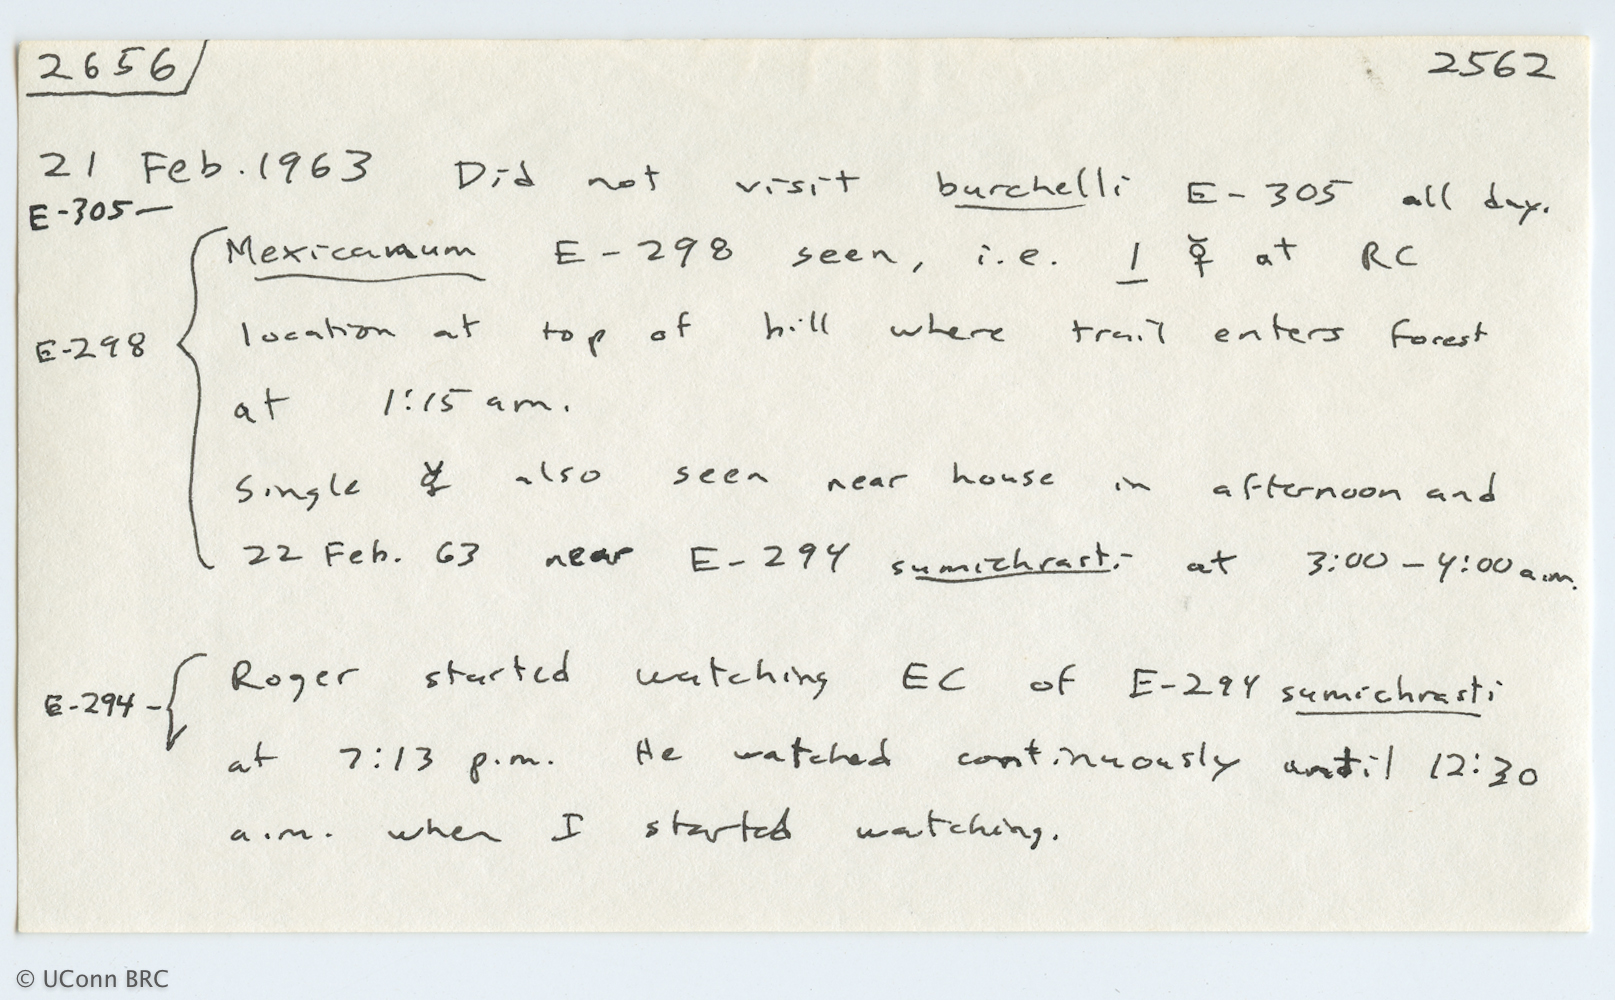 2656 2562
21 Feb. 1963 Did not visit burchelli E-305 all day.
E-305-
Mexicanum E-298 seen, i.e. 1 ☿ at RC
E-298 location at top of hill where trail enters forest
at 1:15 am.
Single ☿ also seen near house in afternoon and
22 Feb. 63 near E-294 sumichrasti at 3:00-4:00 a.m.
Roger started watching EC of E-294 sumichrasti
E-294-
at 7:13 p.m. He watched continuously until 12:30
a.m. when I started watching.
© UConn BRC